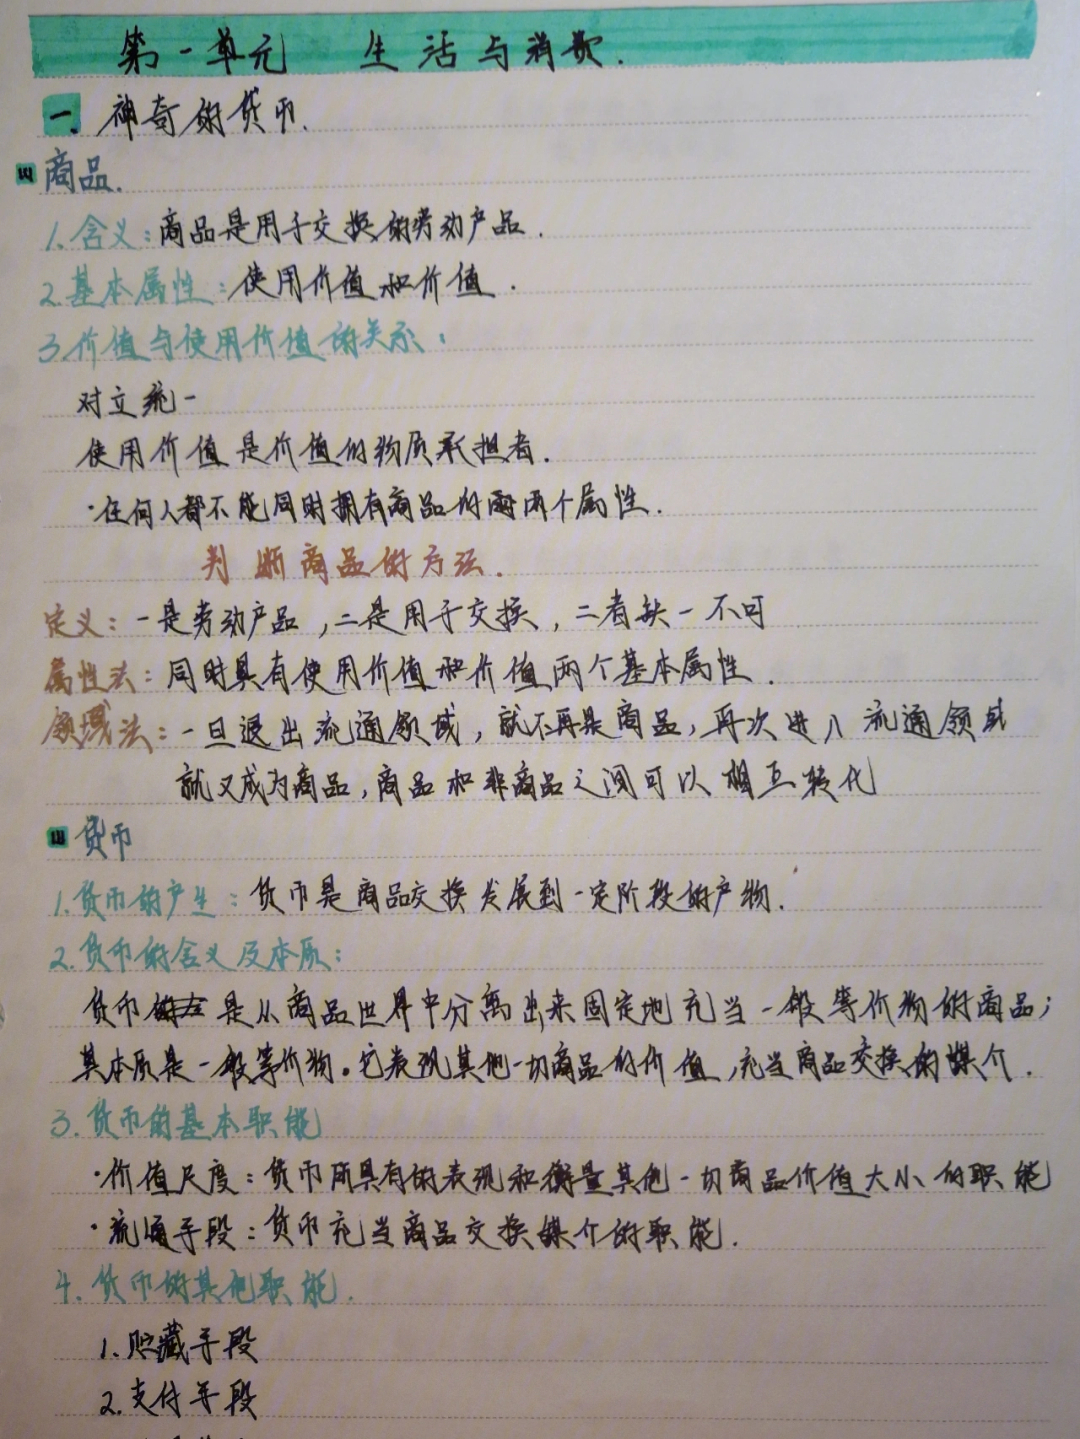 第一单元 生活与消费.
一. 神奇的货币.
商品.
1.含义:商品是用于交换的劳动产品.
2.基本属性:使用价值和价值.
3.价值与使用价值的关系:
对立统一
使用价值是价值的物质承担者.
·任何人都不能同时拥有商品的两个属性.
判断商品的方法.
定义:一是劳动产品,二是用于交换,二者缺一不可
属性法:同时具有使用价值和价值两个基本属性.
领域法:一旦退出流通领域,就不再是商品,再次进入流通领域
就又成为商品,商品和非商品之间可以相互转化
货币
1.货币的产生:货币是商品交换发展到一定阶段的产物.
2.货币的含义及本质:
货币是从商品世界中分离出来固定地充当一般等价物的商品;
其本质是一般等价物。它表现其他一切商品的价值,充当商品交换的媒介.
3.货币的基本职能
·价值尺度:货币所具有的表现和衡量其他一切商品价值大小的职能
·流通手段:货币充当商品交换媒介的职能.
4.货币的其他职能.
1.贮藏手段
2.支付手段